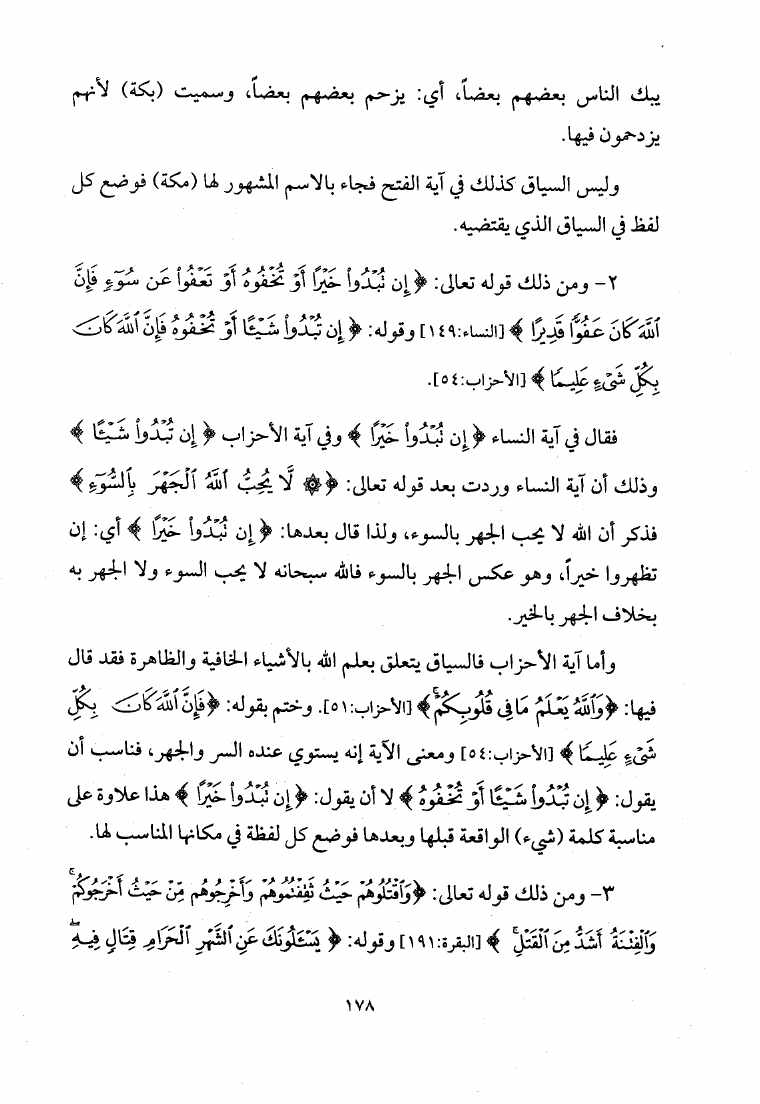 يبك الناس بعضهم بعضاً، أي: يزحم بعضهم بعضاً، وسميت (بكة) لأنهم
يزدحمون فيها.
وليس السياق كذلك في آية الفتح فجاء بالاسم المشهور لها (مكة) فوضع كل
لفظ في السياق الذي يقتضيه.
٢- ومن ذلك قوله تعالى: ﴿ إِن تُبْدُوا۟ خَيْرًا أَوْ تُخْفُوهُ أَوْ تَعْفُوا۟ عَن سُوٓءٍ فَإِنَّ
ٱللَّهَ كَانَ عَفُوًّا قَدِيرًا ﴾ [النساء:١٤٩] وقوله: ﴿ إِن تُبْدُوا۟ شَيْـًٔا أَوْ تُخْفُوهُ فَإِنَّ ٱللَّهَ كَانَ
بِكُلِّ شَىْءٍ عَلِيمًا ﴾ [الأحزاب:٥٤].
فقال في آية النساء ﴿ إِن تُبْدُوا۟ خَيْرًا ﴾ وفي آية الأحزاب ﴿ إِن تُبْدُوا۟ شَيْـًٔا ﴾
وذلك أن آية النساء وردت بعد قوله تعالى: ﴿ ۞ لَّا يُحِبُّ ٱللَّهُ ٱلْجَهْرَ بِٱلسُّوٓءِ ﴾
فذكر أن الله لا يحب الجهر بالسوء، ولذا قال بعدها: ﴿ إِن تُبْدُوا۟ خَيْرًا ﴾ أي: إن
تظهروا خيراً، وهو عكس الجهر بالسوء فالله سبحانه لا يحب السوء ولا الجهر به
بخلاف الجهر بالخير.
وأما آية الأحزاب فالسياق يتعلق بعلم الله بالأشياء الخافية والظاهرة فقد قال
فيها: ﴿وَٱللَّهُ يَعْلَمُ مَا فِى قُلُوبِكُمْ ۚ﴾ [الأحزاب:٥١]. وختم بقوله: ﴿فَإِنَّ ٱللَّهَ كَانَ بِكُلِّ
شَىْءٍ عَلِيمًا ﴾ [الأحزاب:٥٤] ومعنى الآية إنه يستوي عنده السر والجهر، فناسب أن
يقول: ﴿ إِن تُبْدُوا۟ شَيْـًٔا أَوْ تُخْفُوهُ ﴾ لا أن يقول: ﴿ إِن تُبْدُوا۟ خَيْرًا ﴾ هذا علاوة على
مناسبة كلمة (شيء) الواقعة قبلها وبعدها فوضع كل لفظة في مكانها المناسب لها.
٣- ومن ذلك قوله تعالى: ﴿وَٱقْتُلُوهُمْ حَيْثُ ثَقِفْتُمُوهُمْ وَأَخْرِجُوهُم مِّنْ حَيْثُ أَخْرَجُوكُمْ ۚ
وَٱلْفِتْنَةُ أَشَدُّ مِنَ ٱلْقَتْلِ ۚ ﴾ [البقرة:١٩١] وقوله: ﴿ يَسْـَٔلُونَكَ عَنِ ٱلشَّهْرِ ٱلْحَرَامِ قِتَالٍ فِيهِ ۖ
١٧٨